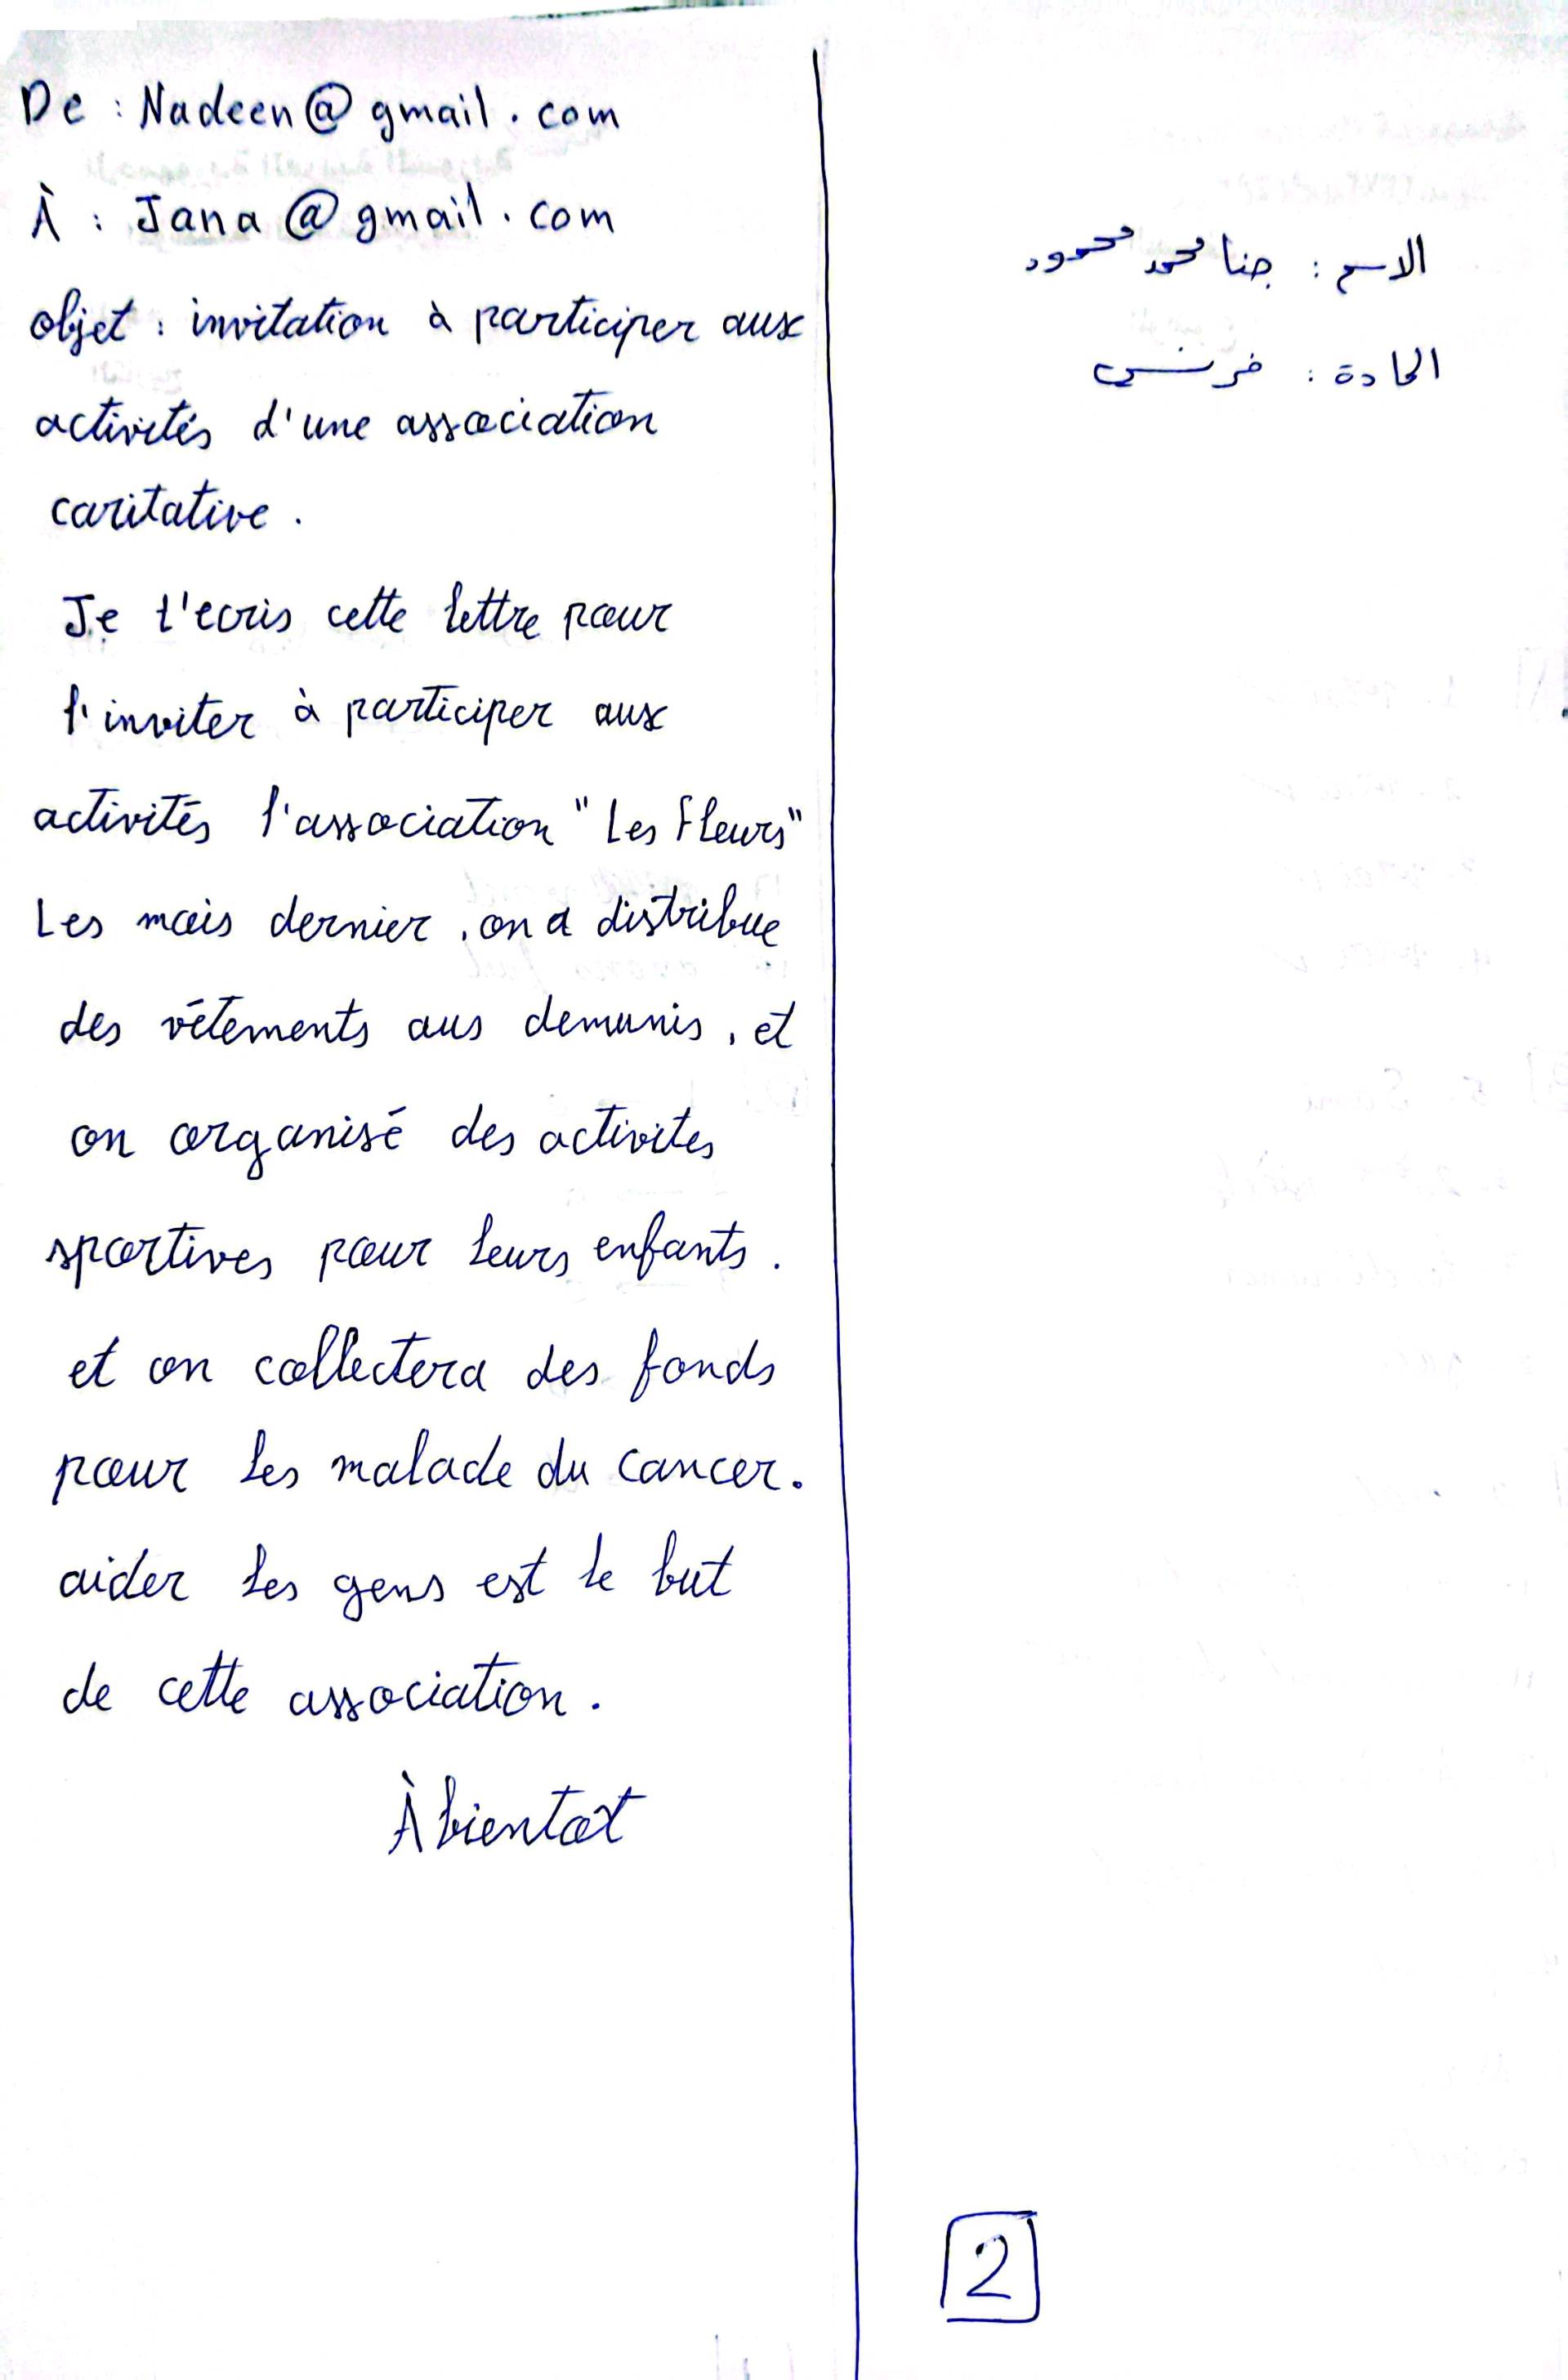 De : Nadeen@gmail.com
À : Jana@gmail.com
objet : invitation à participer aux
activités d'une association
caritative.
Je t'ecris cette lettre pour
l'inviter à participer aux
activités l'association "Les Fleurs"
Les mois dernier, on a distribue
des vêtements aus demunis, et
on organisé des activites
sportives pour leurs enfants.
et on collectera des fonds
pour les malade du cancer.
aider les gens est le but
de cette association.
À bientot
الاسم : جنا محمد محمود
المادة : فرنسي
2